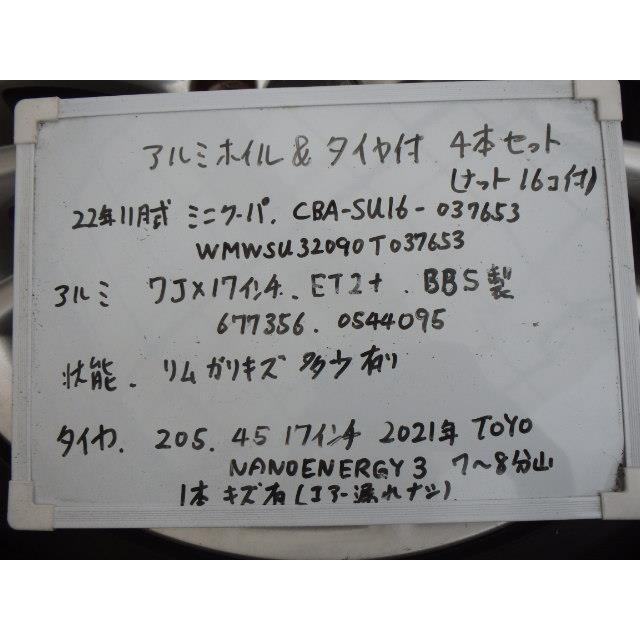 アルミホイル & タイヤ付 4本セット
(ナット16コ付)
22年11月式 ミニクーパ. CBA-SU16-037653
WMWSU32090T037653
アルミ 7J×17インチ. ET2+. BBS製
677356. 0544095
状態. リムガリキズ 多少有り
タイヤ. 205. 45 17インチ 2021年 TOYO
NANOENERGY3 7〜8分山
1本キズ有(エアー漏れナシ)